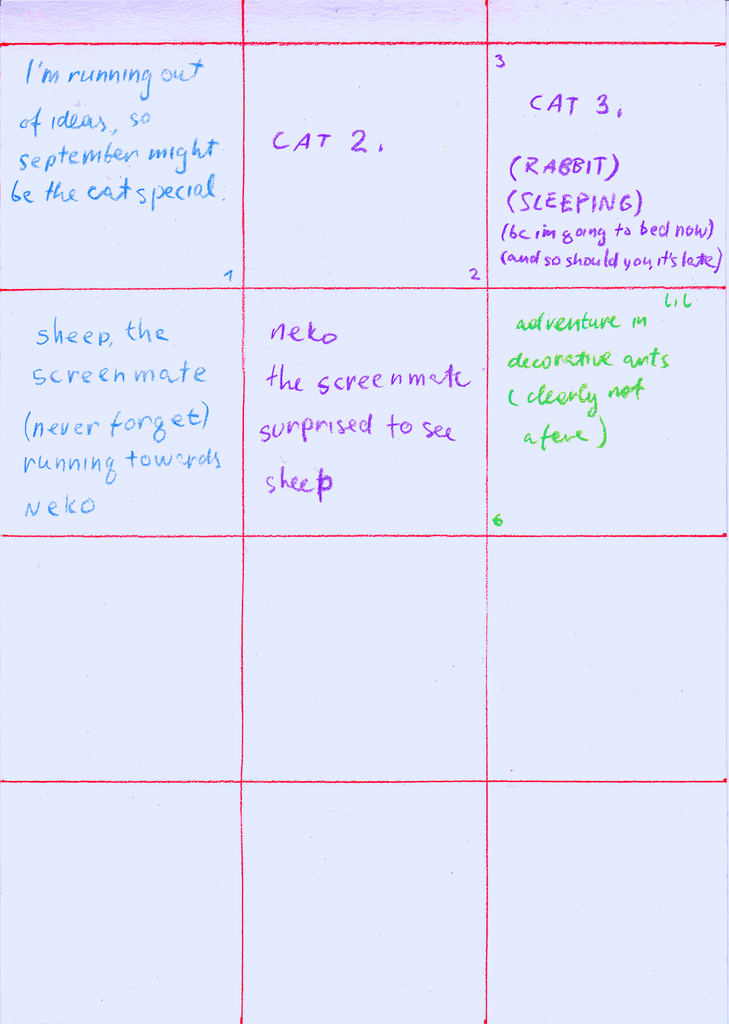 I'm running out
of ideas, so
september might
be the cat special.
1
CAT 2.
2
3
CAT 3.
(RABBIT)
(SLEEPING)
(bc im going to bed now)
(and so should you, it's late)
sheep, the
screenmate
(never forget)
running towards
neko
neko
the screenmate
surprised to see
sheep
LIL
adventure in
decorative ants
(clearly not
a fave)
6